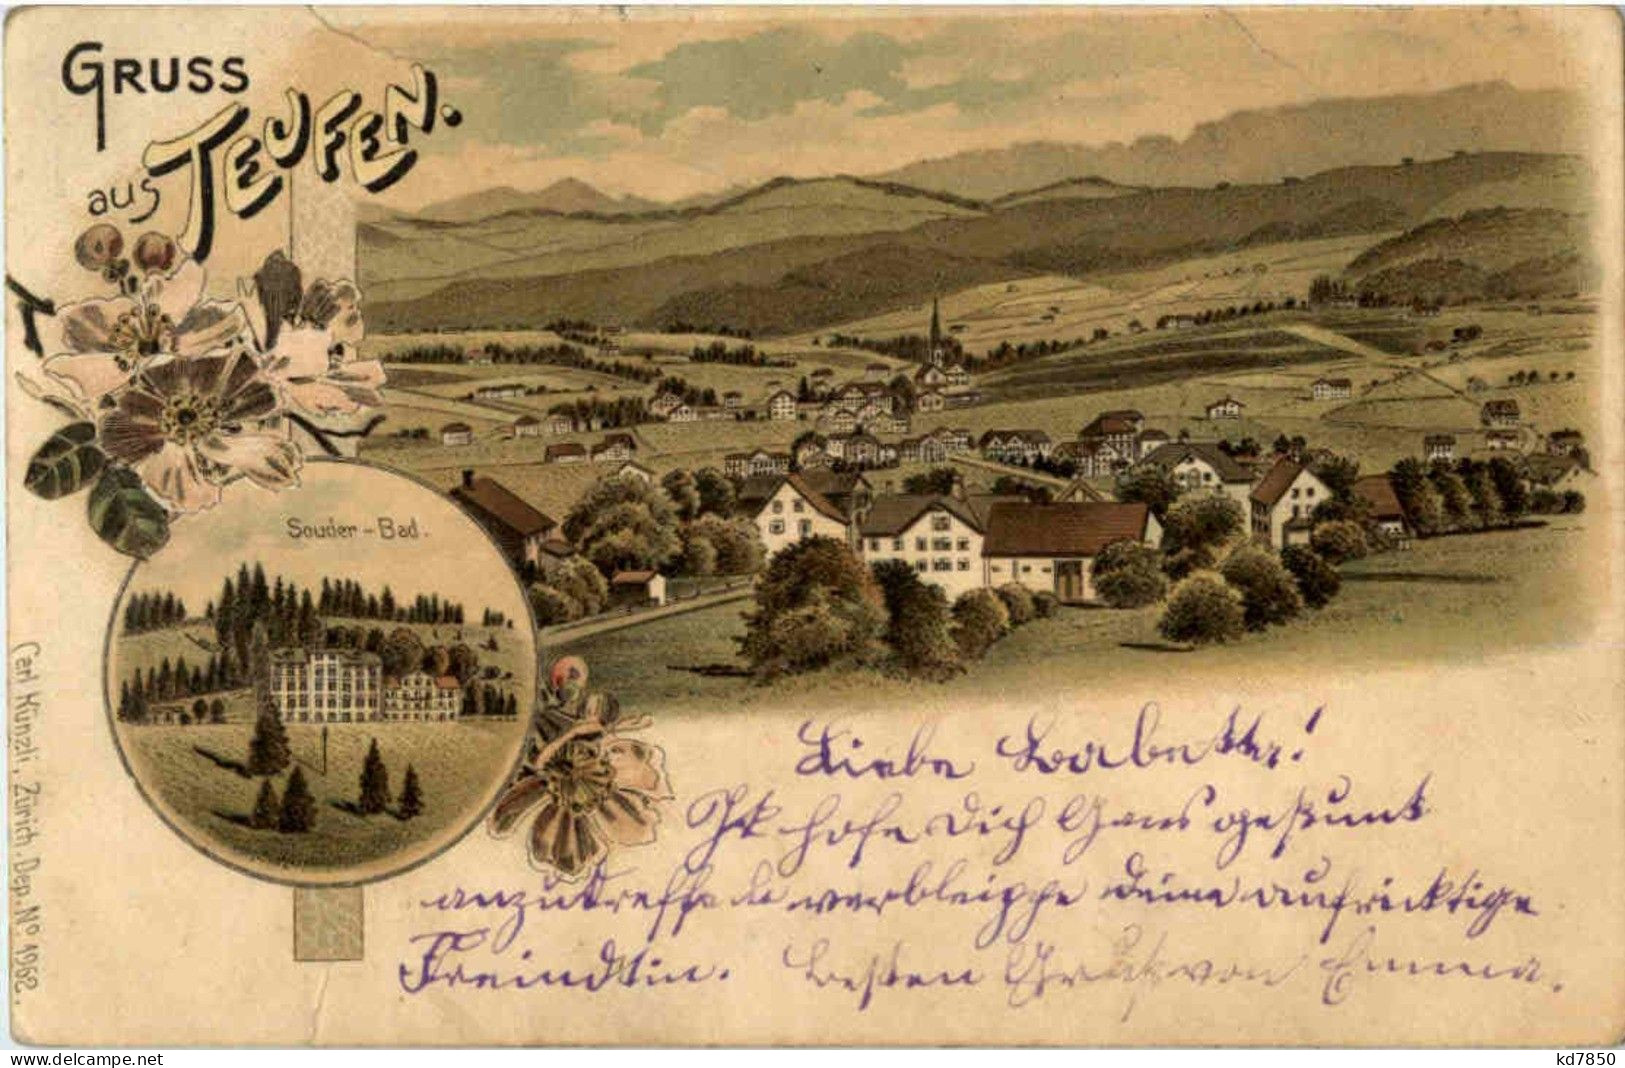 GRUSS
aus TEUFEN.
Souder-Bad.
Carl Künzli, Zürich. Dep. No 1962.
Liebe
Ich hoffe Dich Gans gesund
anzutreffen verbleibe Deine aufricktige
Freindin. besten Gruss von Emma.
delcampe.net
kd7850